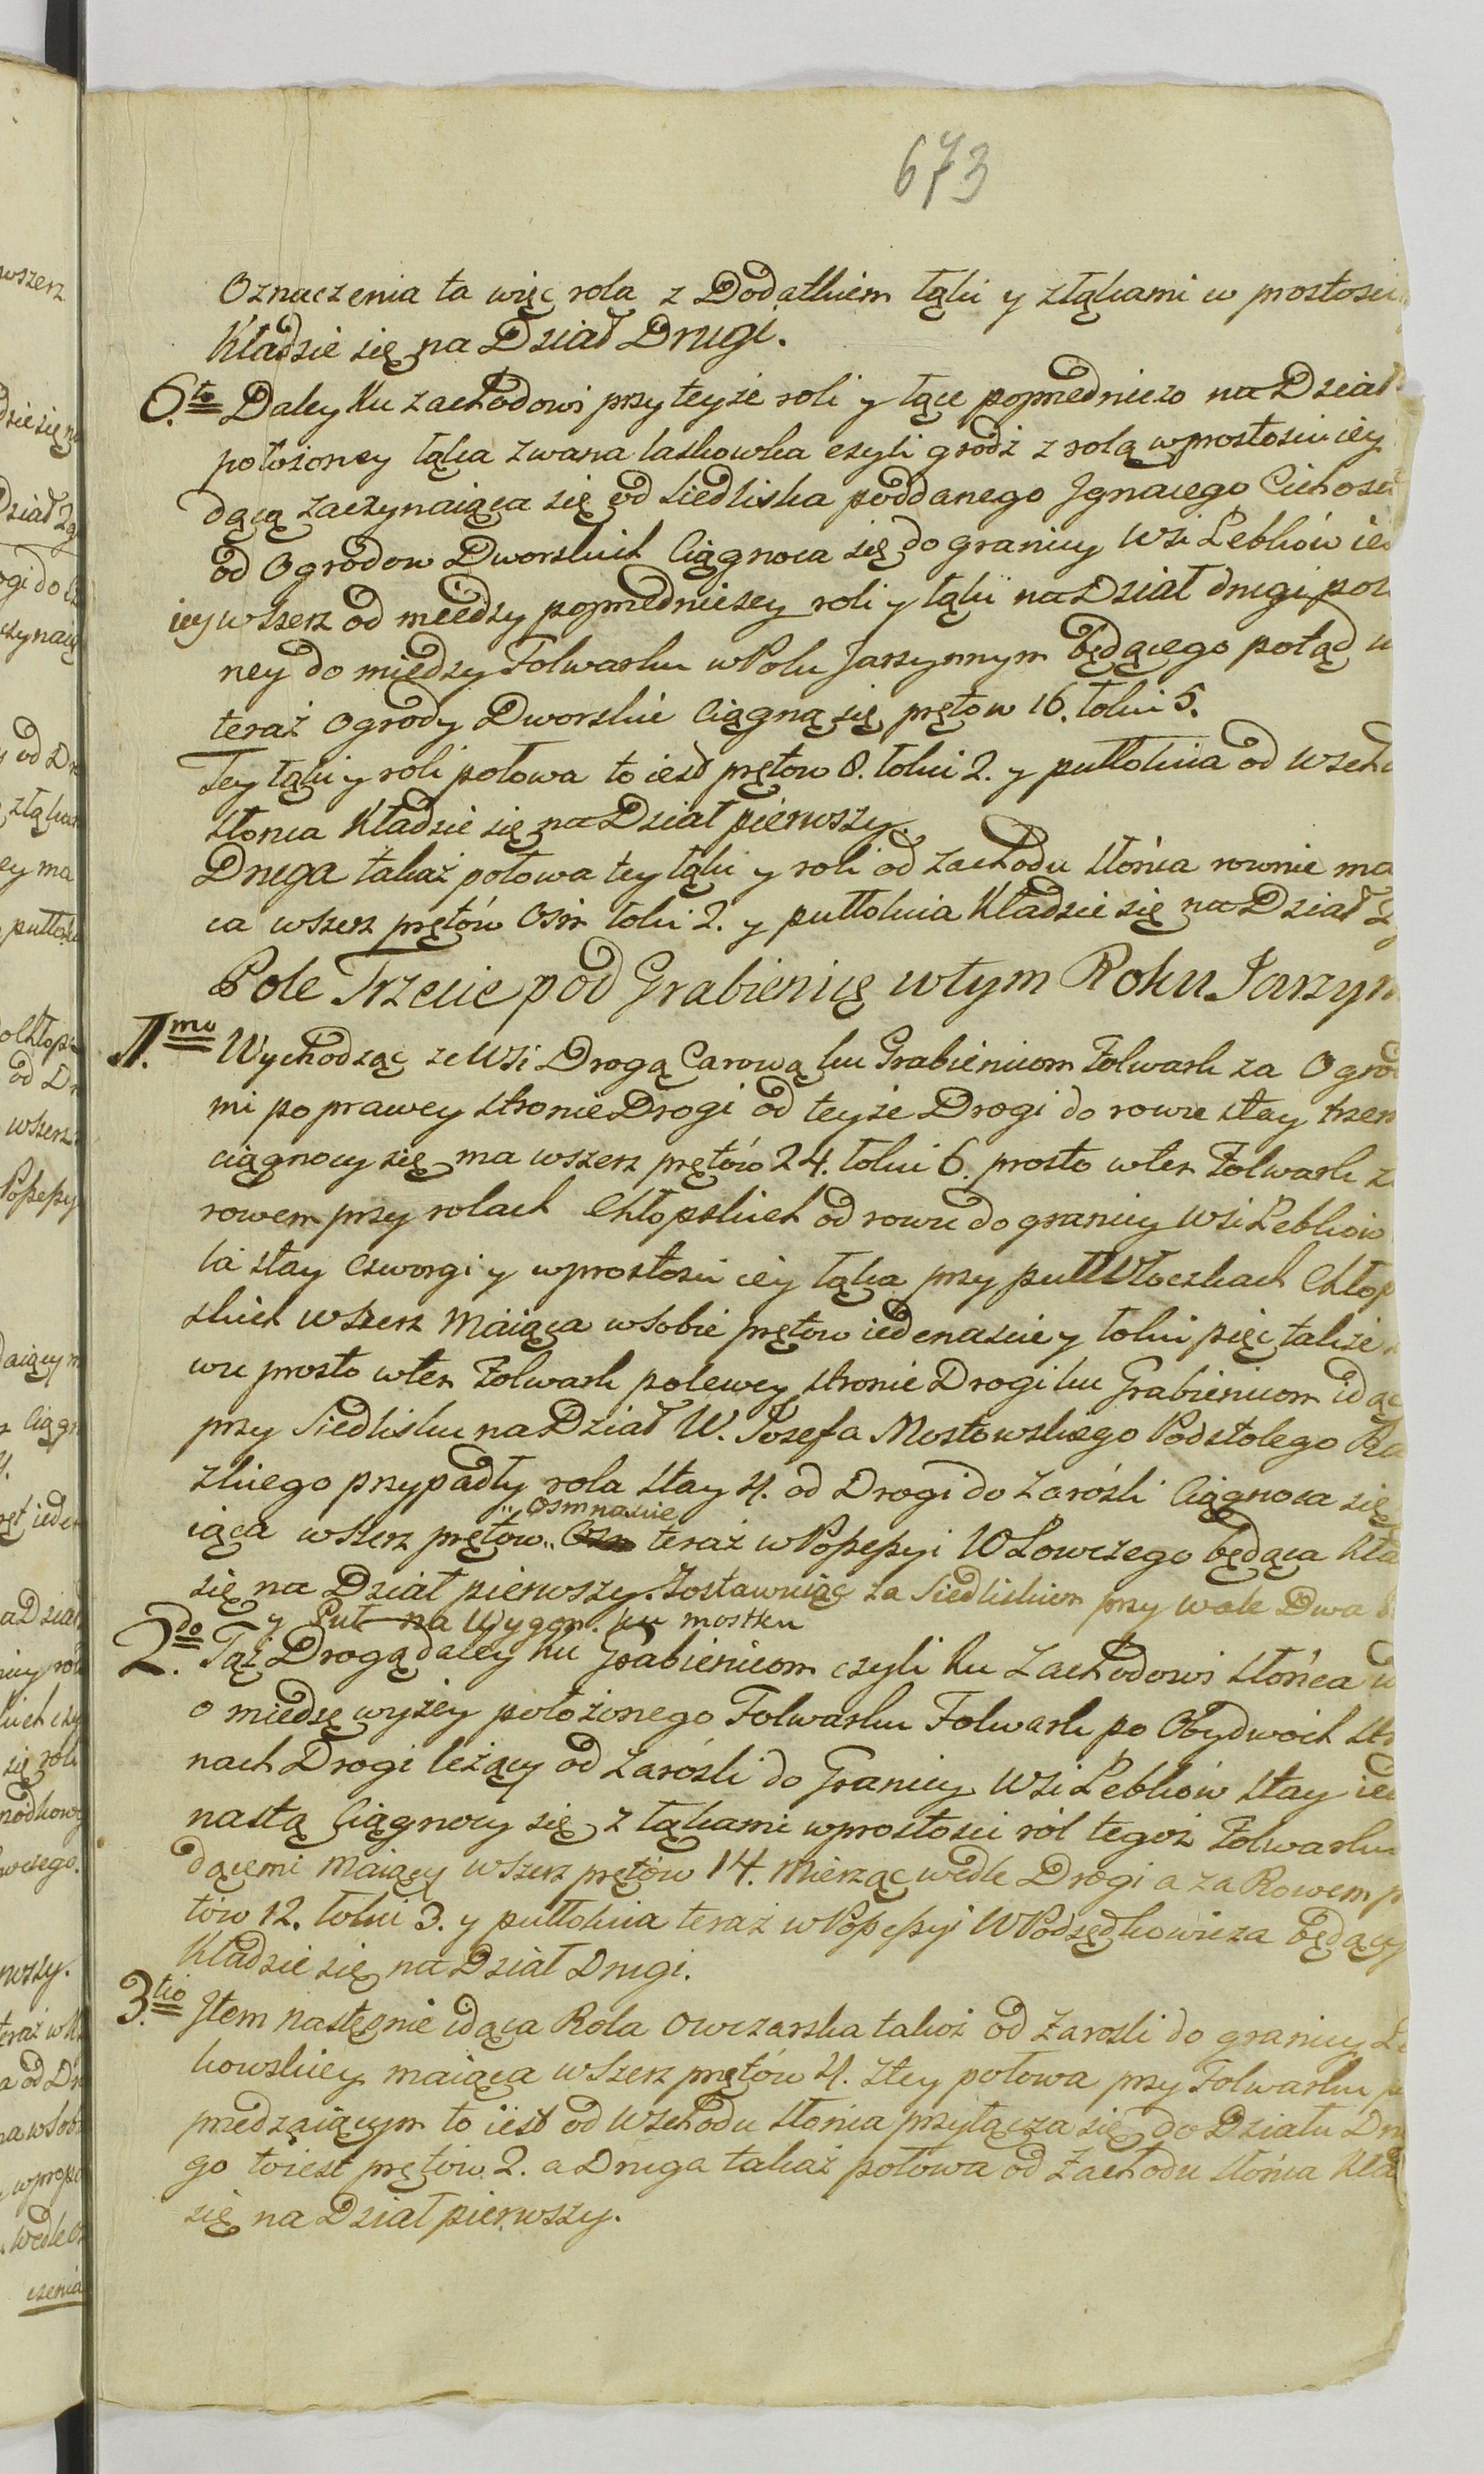 673
Oznaczenia ta więc rola z Dodatkiem łąki y złąkami w prostości
Kładzie się na Dział Drugi.
6.to Daley Ku zachodowi przy teyże roli y łące poprzedniczo na Dział
położoney łąka zwana laskowka czyli grodź z rolą wprostości iey
dącą zaczynaiąca się od siedliska poddanego Jgnacego Cichosz
od Ogrodow Dworskich Ciągnoca się do granicy Wsi Lebków ie
iey wszerz od miedzy poprzedniczey roli y łąki na Dział drugi poło
ney do miedzy Folwarku w Polu Jarzynnym będącego potąd
teraż Ogrody Dworskie Ciągną się prętow 16. łokci 5.
Tey łąki y roli połowa to iest prętow 8. łokci 2. y pułłokcia od Wscho
słonca Kładzie się na Dział pierwszy.
Druga takaż połowa tey łąki y roli od zachodu słońca rownie ma
ca wszerz prętów Ośm łokci 2. y pułłokcia Kładzie się na Dział
Pole Trzecie pod Grabienicę wtym Roku Jarzyn
1.mo Wychodząc ze Wsi Drogą Carową ku Grabienicom Folwark za Ogrod
mi po prawey stronie Drogi od teyże Drogi do rowu stay trzen
ciągnocy się ma wszerz prętów 24. łokci 6. prosto wten Folwark z
rowem przy rolach Chłopskich od rowu do granicy Wsi Lebków
ła stay czworgi y wprostości iey łąka przy pułWłoczkach Chłop
skich wszerz Maiąca wsobie prętow iedenascie y łokci pięc także
wu prosto wten Folwark polewey stronie Drogi ku Grabienicom idąc
przy Siedlisku na Dział W. Jozefa Mostowskiego Podstolego Ra
zkiego przypadły rola stay 4. od Drogi do zarośli Ciągnoca się
osmnascie
iąca wszerz prętow teraż w Poßeßyi WŁowczego będąca Kła
się na Dział pierwszy. Zostawuiąc za Siedliskiem przy wale Dwa
y Put na Wygon ku mostku
2.do Tąż Drogą daley ku Grabienicom czyli ku Zachodowi słońca
o miedzę wyżey położonego Folwarku Folwark po Obydwoch stro
nach Drogi leżący od zarośli do Granicy Wsi Lebków stay ied
nastą Ciągnocy się z łąkami wprostości ról tegoż Folwarku
dącemi Maiący wszerz prętow 14. Mierząc wedle Drogi a za Rowem p
tów 12. łokci 3. y pułłokcia teraż w Poßeßyi WPodsędkowicza będący
Kładzie się na Dział Drugi.
3.tio Jtem następnie idąca Rola Owczarska takoż od zarosli do granicy Le
kowskiey maiąca wszerz prętów 4. ztey połowa przy Folwarku p
przedzaiącym to iest od Wschodu słońca przyłącza się do Działu Dru
go toiest prętów 2. a Druga takaż połowa od Zachodu słońca Kła
się na Dział pierwszy.